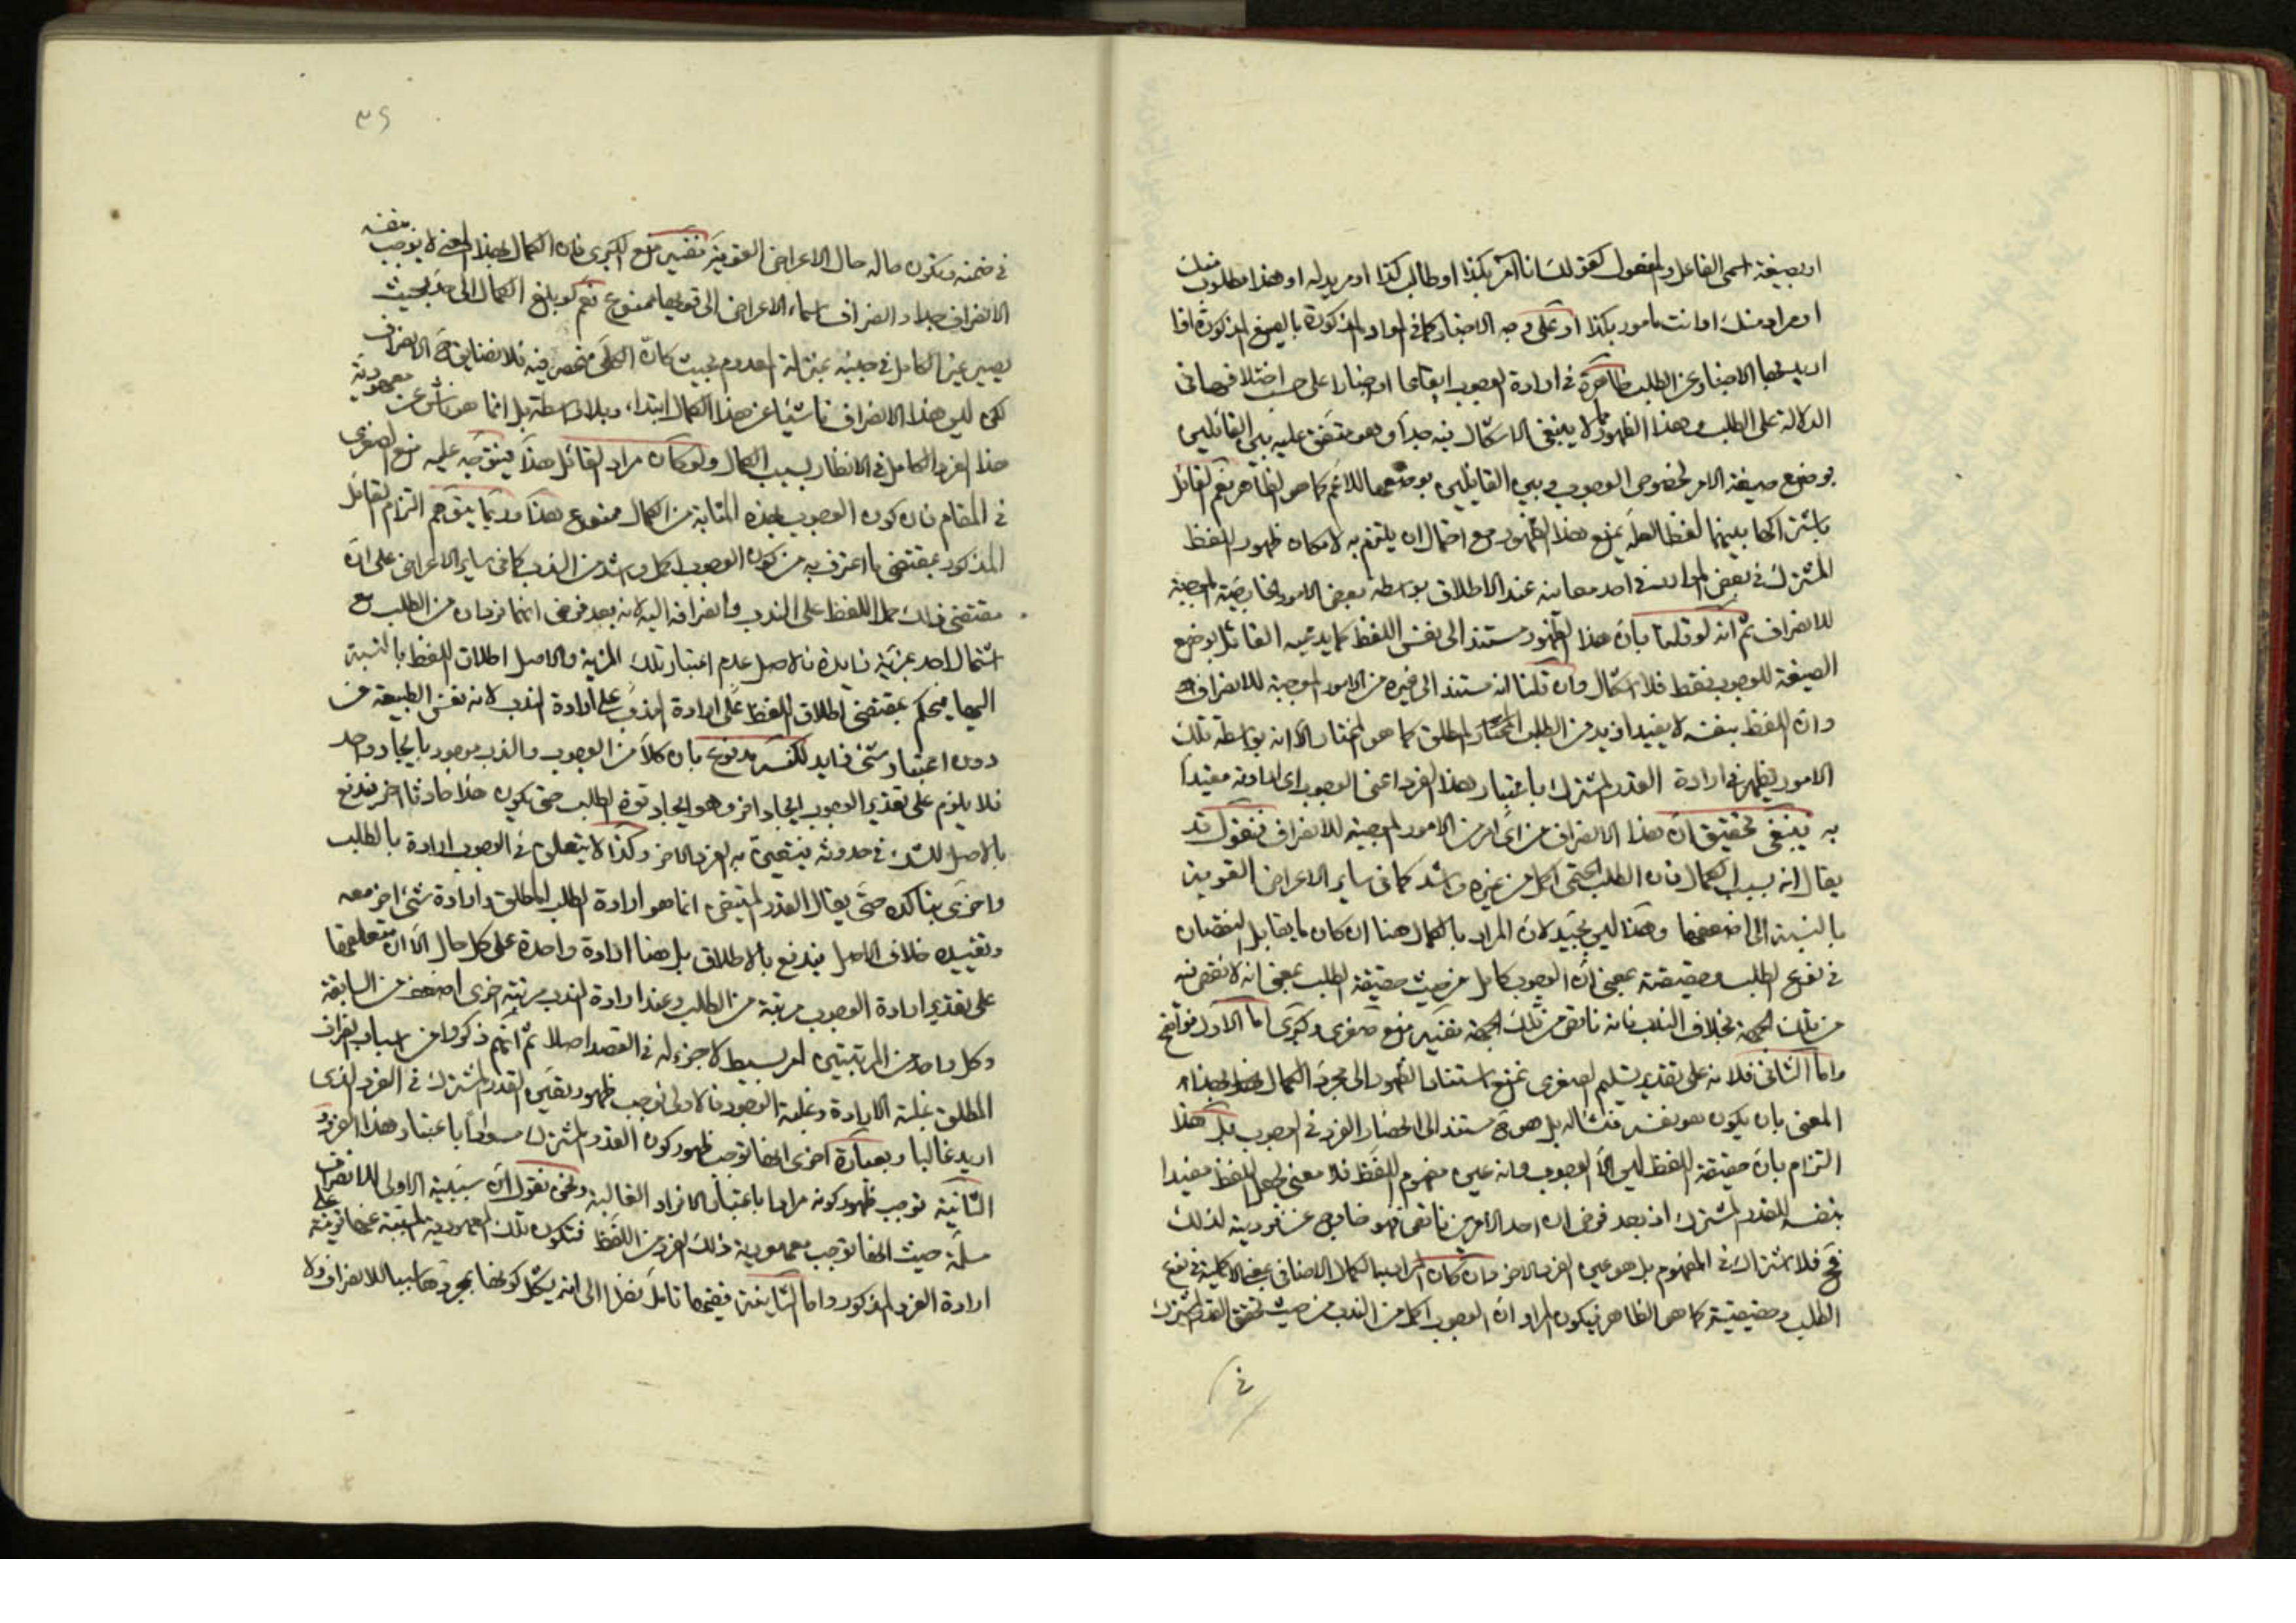 او بصيغة اسمي الفاعل والمفعول كقولك انا آمر بكذا او طالب كذا او مريد له او هذا مطلوب منك
او مراد منك او انت مأمور بكذا او على وجه الاخبار كما في المواد المذكورة بالصيغ المذكورة اذا
اريد بها الاخبار عن الطلب ظاهرة في ارادة الوجوب ايقاعا او اخبارا على حسب اختلافها في
الدلالة على الطلب وهذا الظهور مما لا ينبغي الاشكال فيه جدا وهو متفق عليه بين القائلين
بوضع صيغة الامر لخصوص الوجوب وبين القائلين بوضعها للاعم كما هو الظاهر نعم القائل
باشتراكها بينهما لفظا لعله يمنع هذا الظهور مع احتمال ان يلتزم به لامكان ظهور اللفظ
المشترك في بعض الموارد في احد معانيه عند الاطلاق بواسطة بعض الامور الخارجية الموجبة
للانصراف ثم انه لو قلنا بان هذا الظهور مستند الى نفس اللفظ كما يدعيه القائل بوضع
الصيغة للوجوب فقط فلا اشكال وان قلنا انه مستند الى غيره من الامور الموجبة للانصراف
وان اللفظ بنفسه لا يفيد ازيد من الطلب المطلق كما هو المختار الا انه بواسطة تلك
الامور يظهر في ارادة القدر المشترك باعتبار هذا الفرد اعني الوجوب اي ارادته مقيدا
به ينبغي تحقيق ان هذا الانصراف من اي امر من الامور الموجبة للانصراف فنقول قد
يقال انه بسبب الكمال فان الطلب الحتمي اكمل من غيره واشد كما في ساير الاعراض القوية
بالنسبة الى اضعفها وهذا ليس بجيد لان المراد بالكمال هنا ان كان ما يقابل النقصان
في نوع الطلب وحقيقته بمعنى ان الوجوب كامل من حيث حقيقة الطلب بمعنى انه لا نقص فيه
من تلك الجهة بخلاف الندب فانه ناقص من تلك الجهة ففيه منع صغرى وكبرى اما الاول فواضح
واما الثاني فلانه على تقدير تسليم الصغرى نمنع استناد الظهور الى مجرد الكمال بهذا
المعنى بان يكون هو بنفسه منشأ له بل هو ح مستند الى انحصار الفرد في الوجوب بل هذا
التزام بان حقيقة اللفظ ليس الا الوجوب وانه عين مفهوم اللفظ فلا معنى لجعل اللفظ مفيدا
بنفسه للقدر المشترك اذ بعد فرض ان احد الامرين ناقص فهو خارج عن فردية لذلك
فح فلا اشتراك في المفهوم بل هو عين الفرد الاخر وان كان المراد بالكمال الاضافي بمعنى الاكملية في نوع
الطلب وحقيقته كما هو الظاهر فيكون المراد ان الوجوب اكمل من الندب من حيث تحقق القدر المشترك
في
٣٩
في ضمنه ويكون حاله حال الاعراض القوية ففيه منع الكبرى فان الكمال بهذا المعنى لا يوجب بنفسه
الانصراف جدا وانصراف اسماء الاعراض الى قويها ممنوع نعم لو بلغ الكمال الى حد بحيث
يصير غير الكامل في جنبه بمنزلة المعدوم بحيث كان الكلي منحصر فيه فلا نضايق ح الانصراف
لكن ليس هذا الانصراف ناشئا عن هذا الكمال ابتداء وبلا واسطة بل انما هو ناش عن معهودية
هذا الفرد الكامل في الانظار بسبب الكمال ولو كان مراد القائل هذا فيتوجه عليه منع الصغرى
في المقام فان كون الوجوب بهذه المثابة من الكمال ممنوع هذا وربما يتوهم التزام القائل
المذكور بمقتضى ما اعترف به من كون الوجوب اكمل واشد من الندب كما في ساير الاعراض على ان
مقتضى ذلك حمل اللفظ على الندب وانصرافه اليه لانه بعد فرض انهما فردان من الطلب مع
اشتمال احد بمزية زايدة فالاصل عدم اعتبار تلك المزية والاصل اطلاق اللفظ بالنسبة
اليها فيحكم بمقتضى اطلاق اللفظ على ارادة الندب لانه نفس الطبيعة من
دون اعتبار شئ زايد لكنه مدفوع بان كلا من الوجوب والندب موجود بايجاد واحد
فلا يلزم على تقدير الوجوب ايجاد اخر وهو ايجاد قوة الطلب حتى يكون هذا حادثا اخر فيدفع
بالاصل للشك في حدوثه فيتعين به الفرد الاخر وكذا لا يتعلق في الوجوب ارادة بالطلب
واخرى بتأكده حتى يقال القدر المتيقن انما هو ارادة الطلب المطلق وارادة شئ اخر معه
وتقييده خلاف الاصل فيدفع بالاطلاق بل هنا ارادة واحدة على كل حال الا ان متعلقها
على تقدير ارادة الوجوب مرتبة من الطلب وعند ارادة الندب مرتبة اخرى اضعف من السابقة
وكل واحد من المرتبتين امر بسيط لا جزء له في القصد اصلا ثم انهم ذكروا من اسباب انصراف
المطلق غلبة الارادة وغلبة الوجود فالاولى توجب ظهور تعين القدر المشترك في الفرد الذي
اريد غالبا وبعبارة اخرى انها توجب ظهور كون القدر المشترك مرادا باعتبار هذا الفرد و
الثانية توجب ظهور كونه مرادا باعتبار الافراد الغالبة ونحن نقول ان سببية الاولى للانصراف
مسلمة حيث انها توجب معهودية ذلك الفرد من اللفظ فتكون تلك المعهودية المسببة عنها قرينة على
ارادة الفرد المذكور واما الثانية ففيها تأمل نظرا الى انه يشكل كونها بمجردها سببا للانصراف ولا